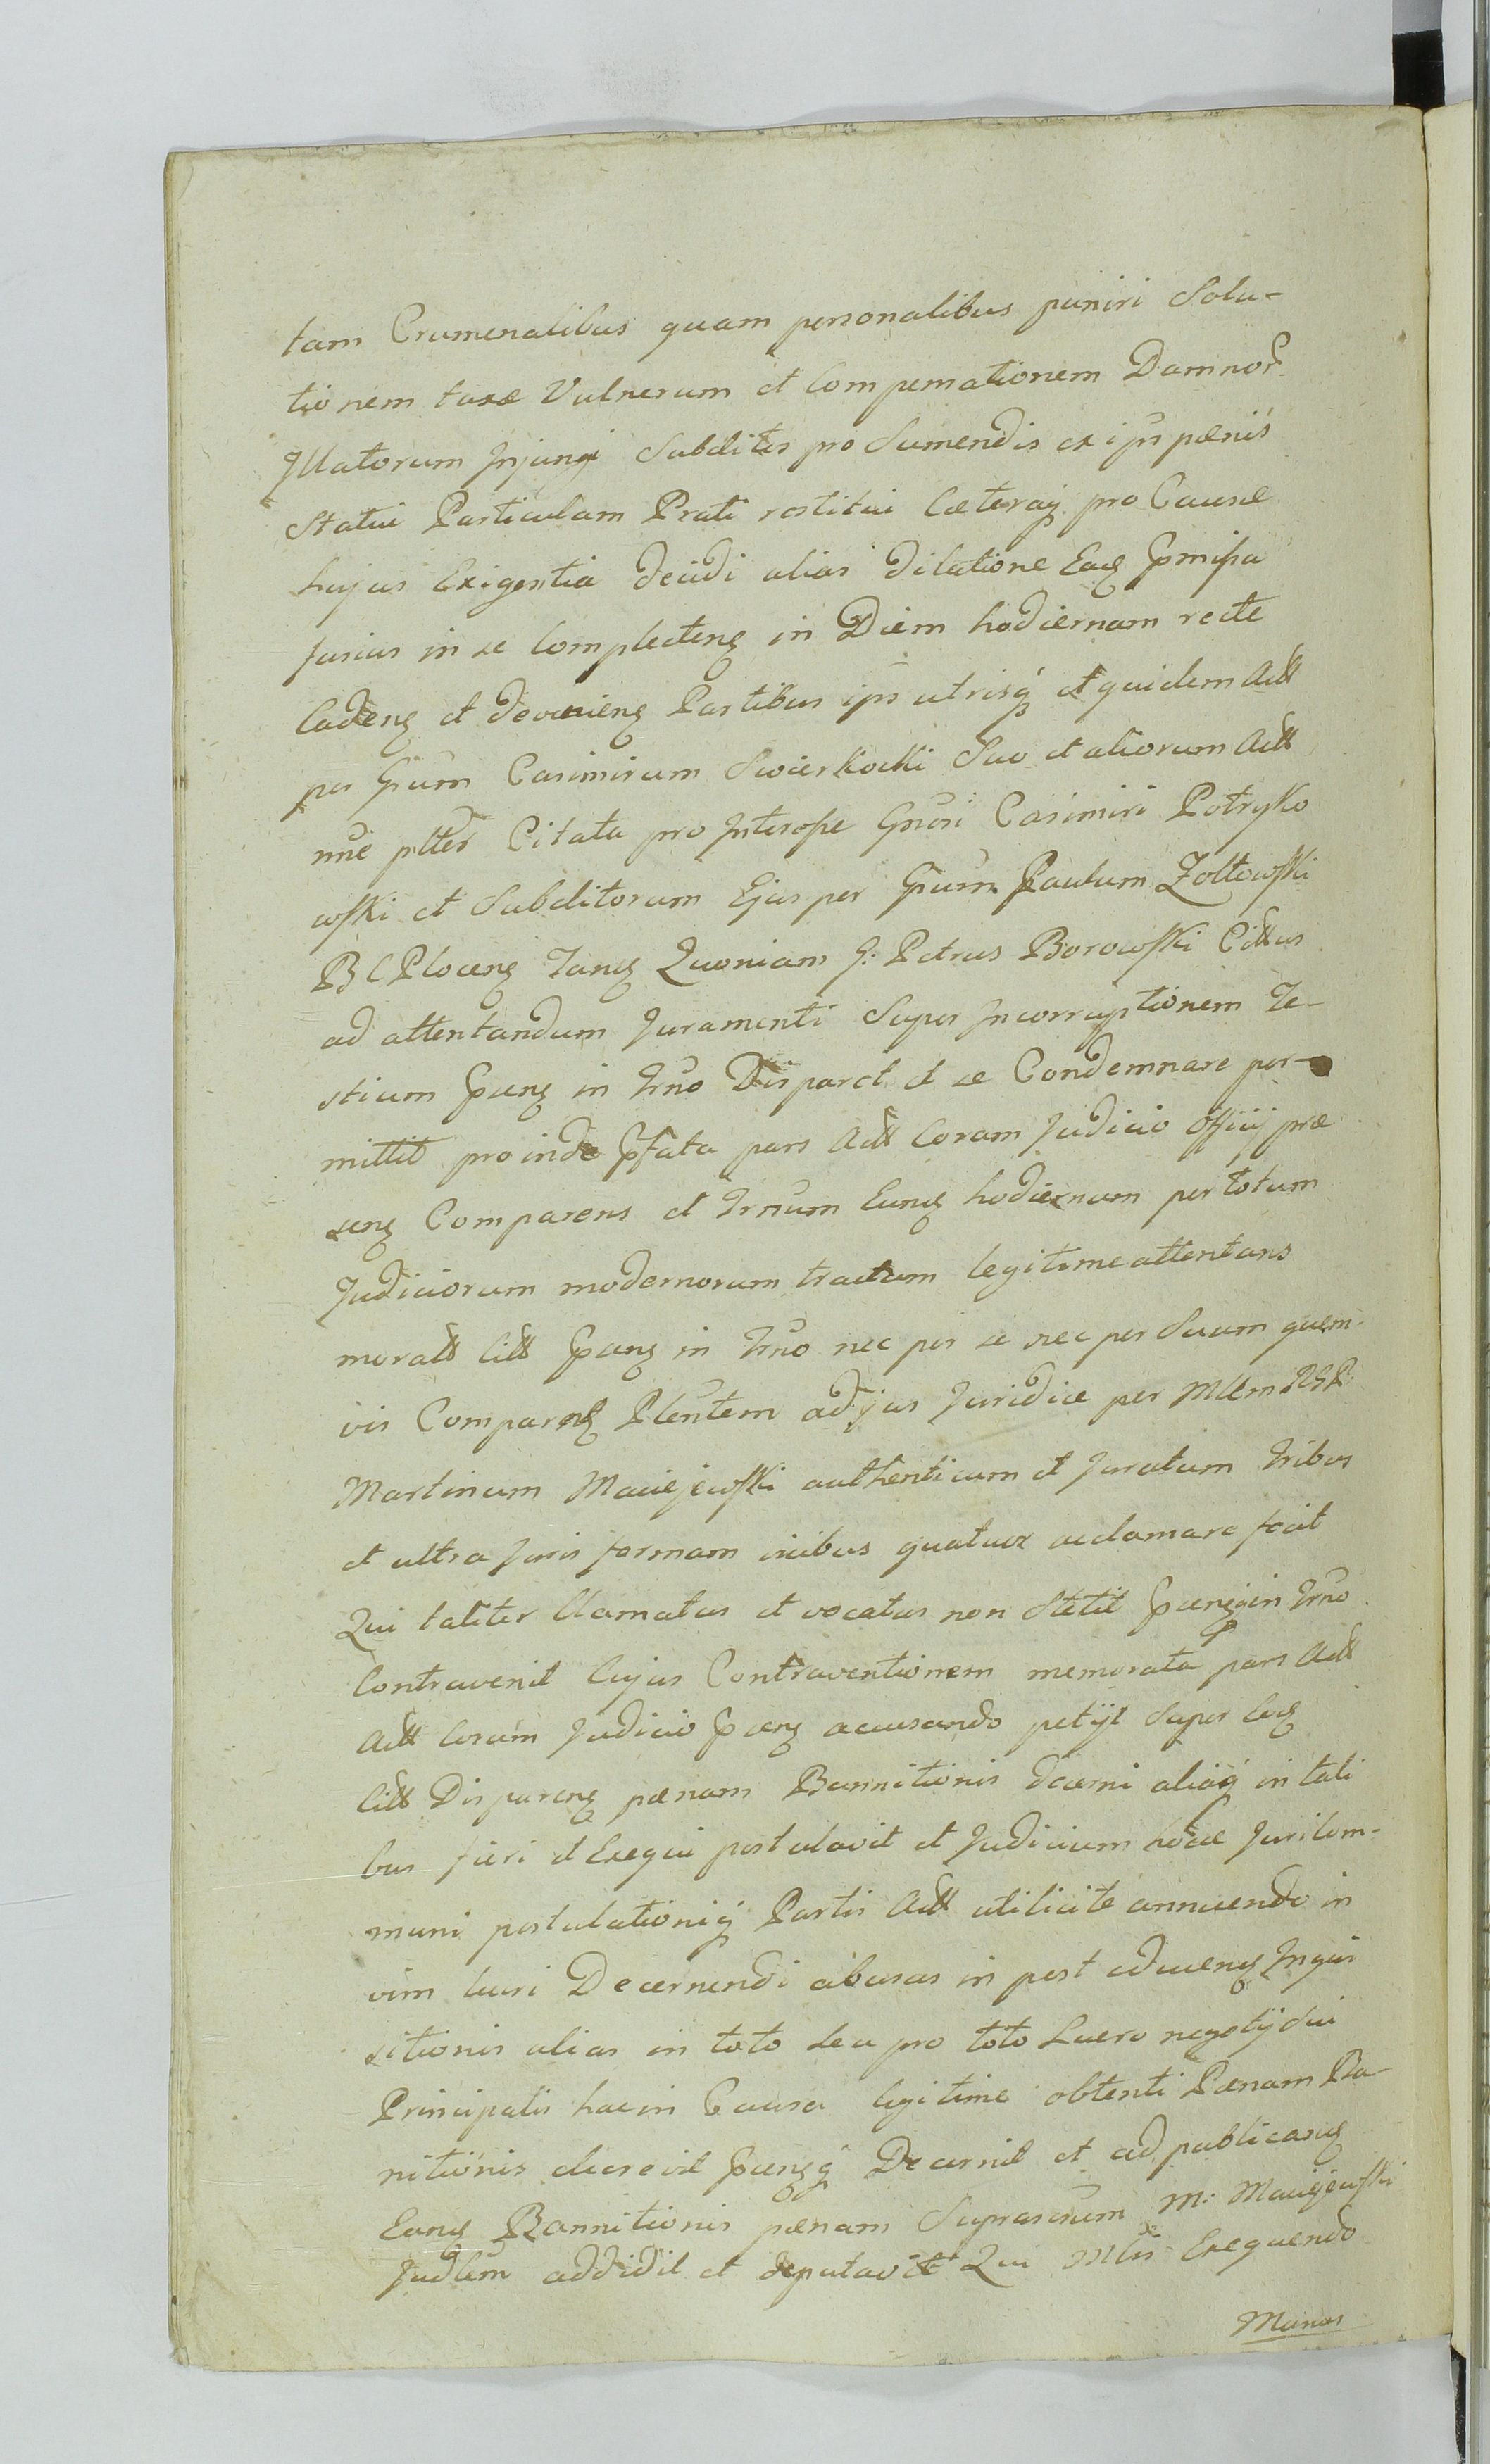 tam Crumenalibus quam personalibus puniri Solu-
tionem taxæ Vulnerum et Compensationem Damnor
Illatorum Injungi Subditos pro Sumendis ex ijs pænis
Statui Particulam Prati restitui Cæteraq pro Causæ
hujus Exigentia decidi alias dilatione Eaq præmissa
fusius in se Complecten in Diem hodiernam recte
Caden et devenien Partibus ips utrisq et quidem Act
per Grum Casimirum Swierkocki Suo et aliorum Act
nne plter Citata pro Interesse Grosi Casimiri Potryko
wski et Subditorum Ejus per Grum Paulum Zołtowski
B C Plocen Tanq Quoniam G: Petrus Borowski Cittus
ad attentandum Juramenti Super Incorruptionem Te-
stium præns in Trno Disparet et se Condemnare per-
mittit proinde præfata pars Act Coram Judicio Officij præ
sen Comparens et Trnum Eunq hodiernum per totum
Judiciorum modernorum tractum legitime attentans
moratt Citt præns in Trno nec per se nec per Suum quem-
vis Comparen Plentem ad jus Juridice per Mlem RGR
Martinum Maciejewski authenticum et Juratum tribus
et ultra Juris formam vicibus quatuor acclamare fecit
Qui taliter Clamatus et vocatus non Stetit præns in Trno
Contravenit Cujus Contraventionem memorata pars Act
Act Coram Judicio præns accusando petijt Super Eoq
Citt Disparen pænam Bannitionis decerni aliaq in tali
bus fieri et Exequi postulavit et Judicium hocce Juri Com-
muni postulationiq Partis Act utilicite annuendo in
vim Decernendi abusus in post Inqui
sitionis alias in toto seu pro toto Lucro negotij sui
Principalis hac in Causa legitime obtenti Pænam Ba-
nitionis decrevit prænsq Decernit et ad publicanq
Eanq Bannitionis pænam Suprascrum M: Maciejewski
Judlem addidit et deputavit Qui Mlis Exequendo
Manus